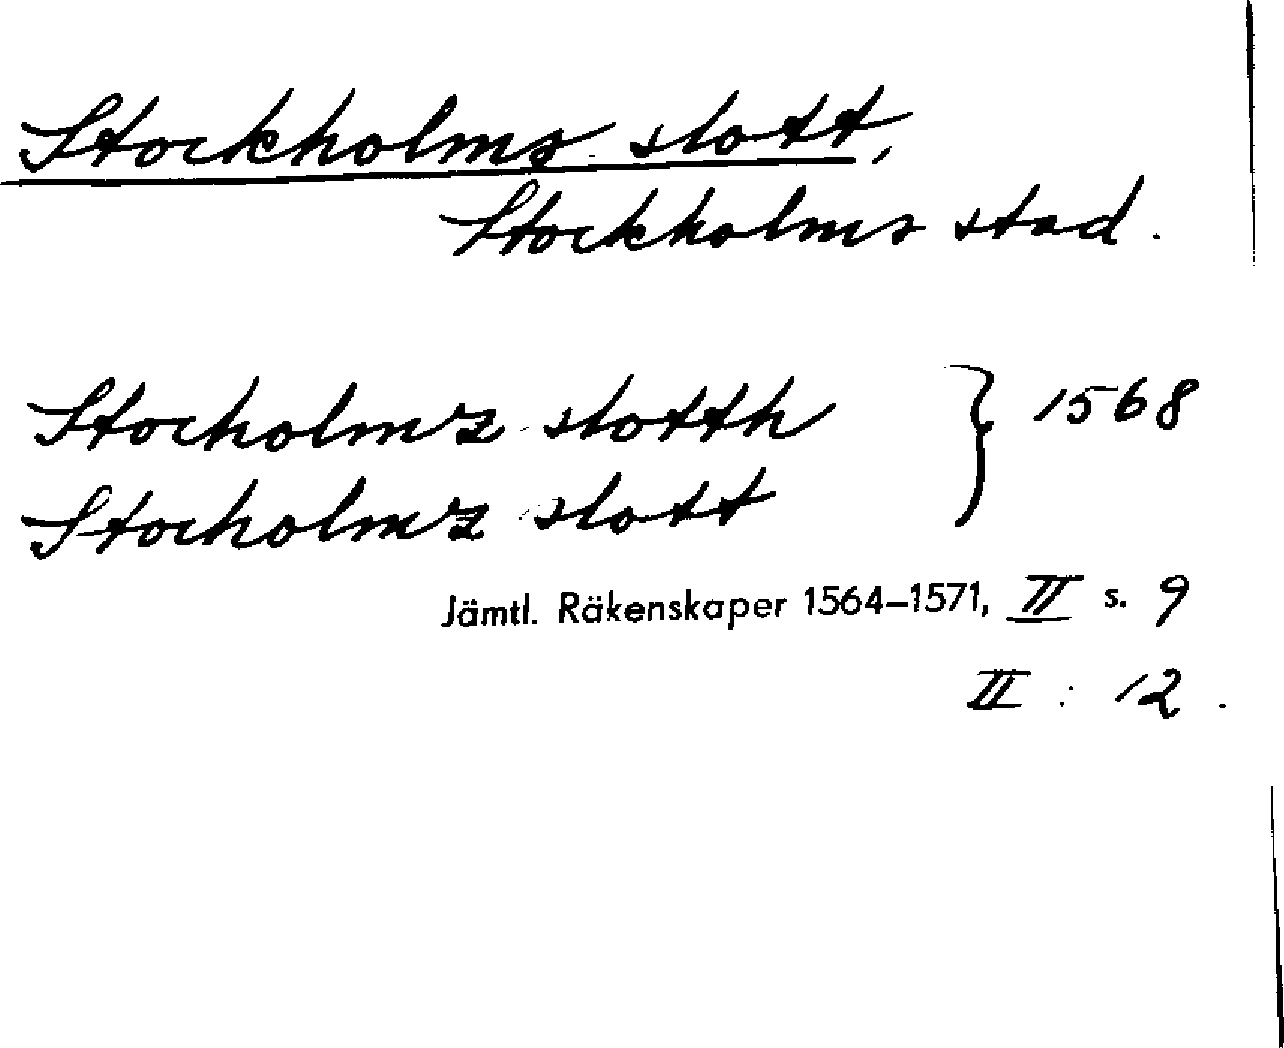 Stockholms slott,
Stockholms stad.
Stocholm'z slotth } 1568
Stocholm'z slott
Jämtl. Räkenskaper 1564–1571, II s. 9
II : 12.